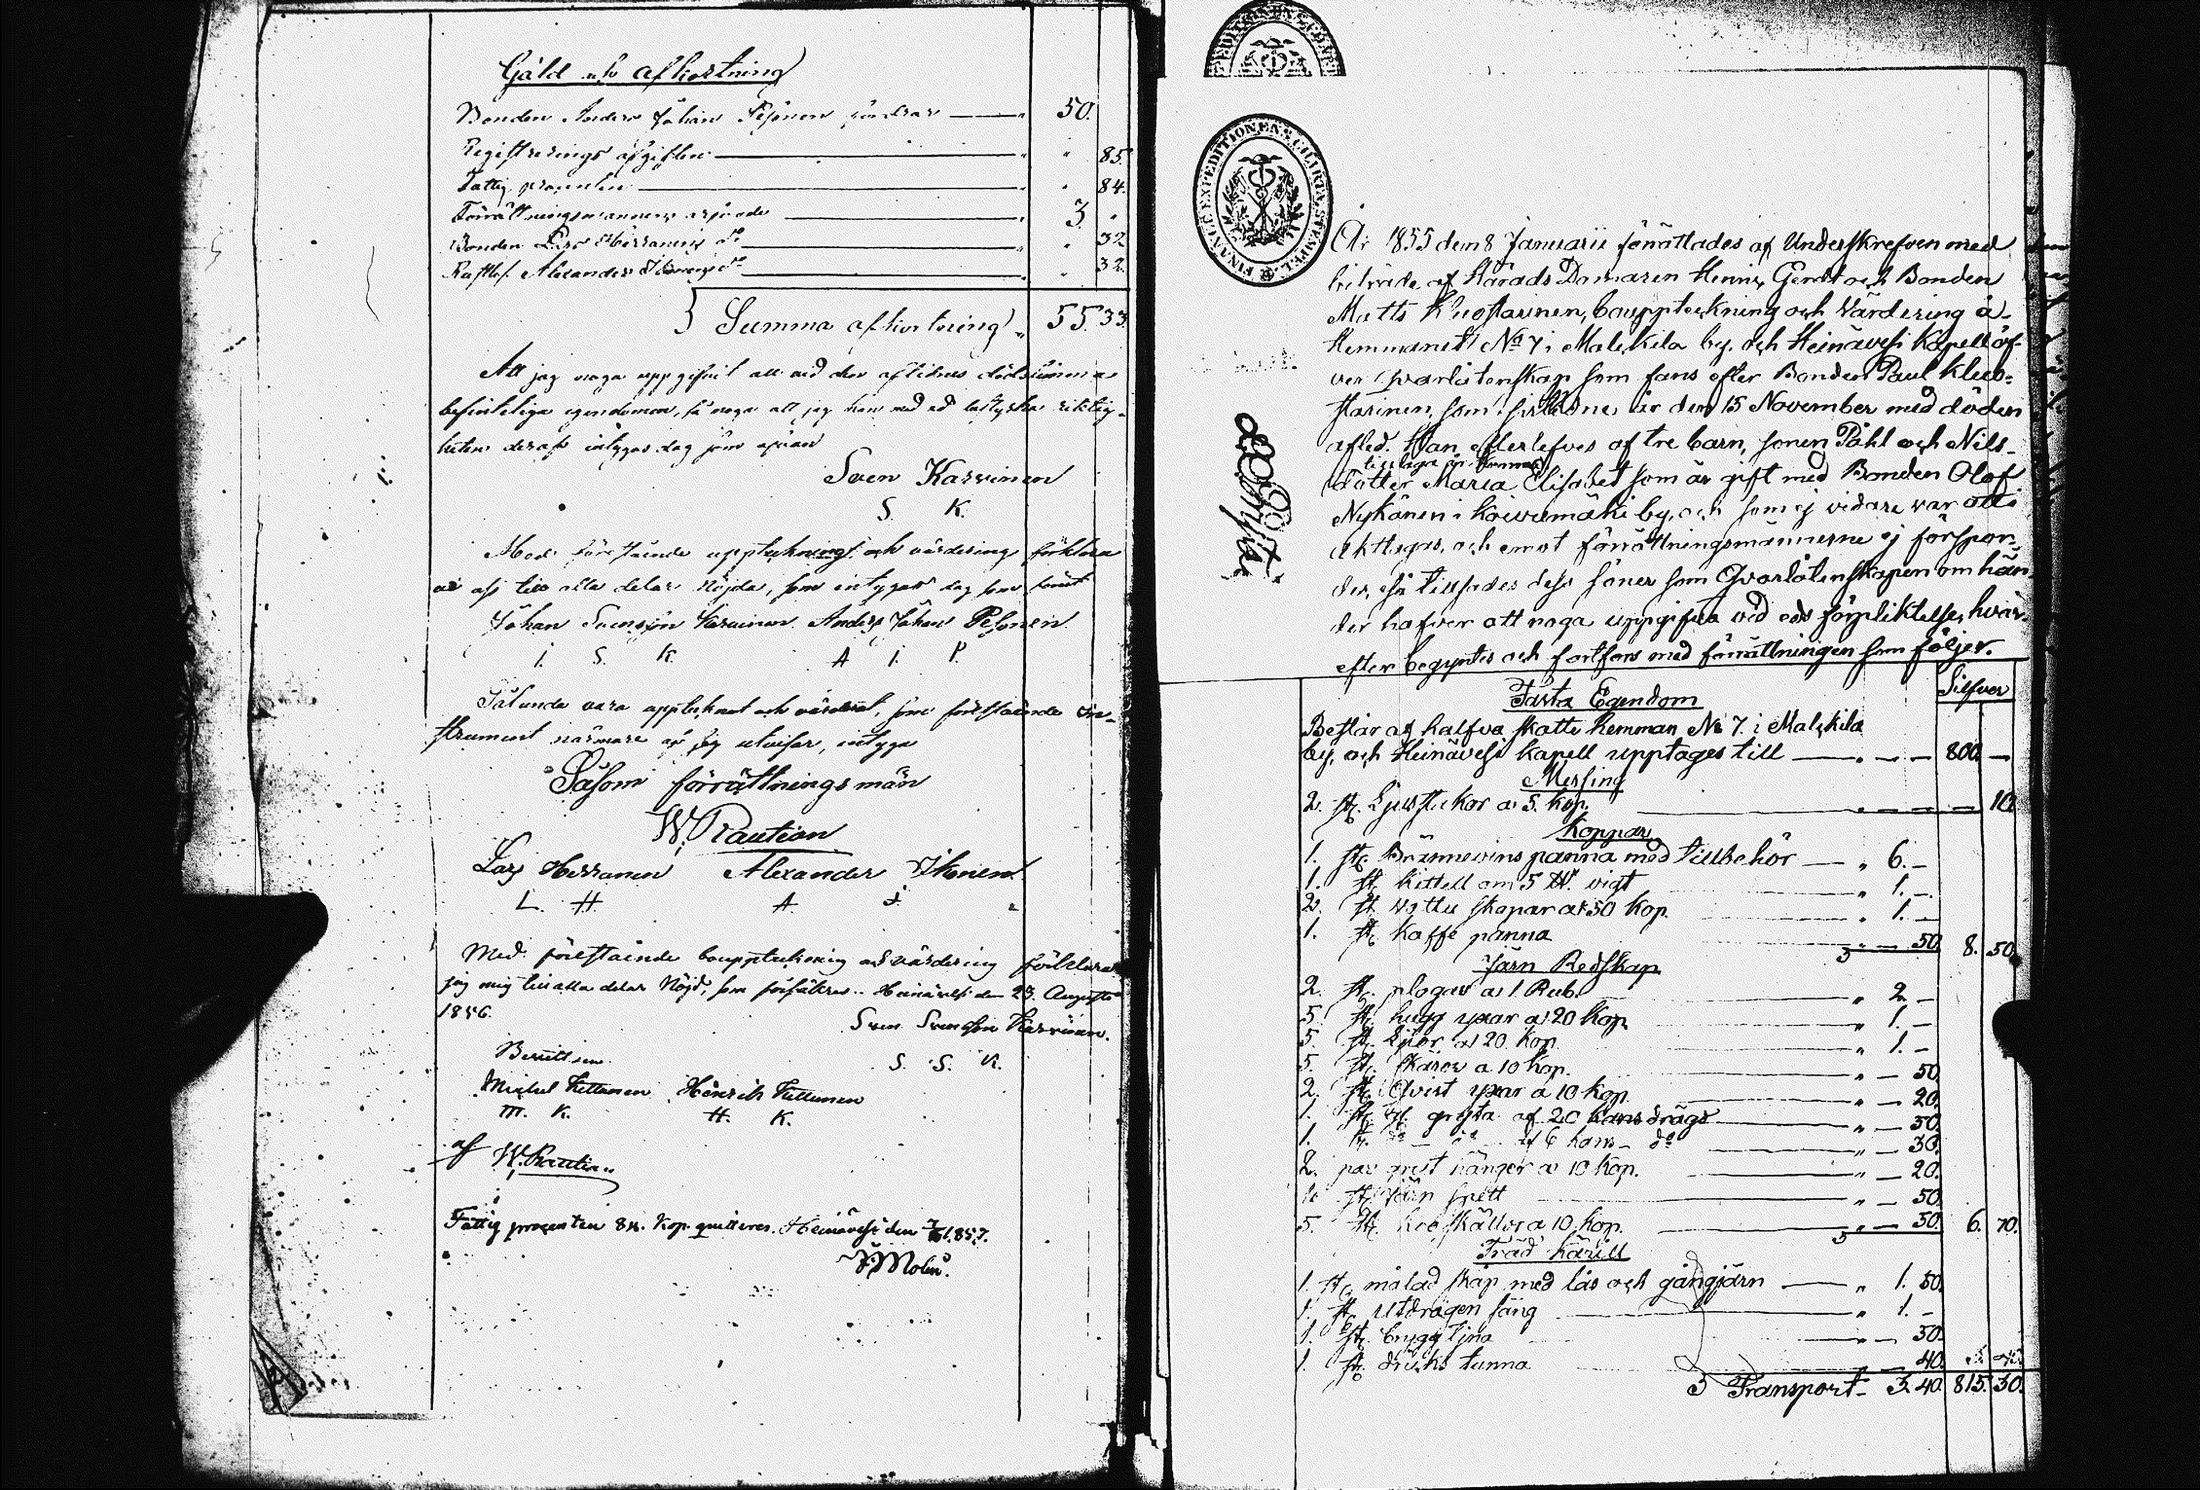 Gäld och afkortning
Bonden Anders Johan Pesonen fordrar 50.
Registrerings afgiften 85.
Fattig procenten 84.
Förrättningsmannens arfvode 3.
Bonden Lars Herranens do 32
Alexander Ikonens do 32.
Summa afkortning 55.33.
Att jag noga uppgifvit all vid den aflidnes
befinteliga egendomen, så noga att jag kan med ed bestyrka riktig-
heten deraf intygas dag som ofvan
Sven Karvinen
S. K.
Med förestående uppteckning och värdering förklara
vi oss till alla delar nöjda, som intygas dag som förut
Johan Svensson Karvinen. Anders Johan Pesonen.
J. S. K. A J. P.
Sålunda vara upptecknat och värderat, som förestående in-
strument närmare af sig utvisar, intyga
Såsom förrättningsmän
W. Rautian
Lars Herranen Alexander Ikonen.
L. H. A. I.
Med förestående bouppteckning och värdering förklarar
jag mig till alla delar Nöjd, som försäkras. Heinävesi den 23. Augusti
1856.
Sven Svensson Karvinen.
S. S. K.
Bevittna
Michel Kettunen Henrich Kettunen
M. K. H. K.
af W. Rautian
Fattig procenten 84. Kop. quitteras. Heinävesi den 1857.
Molin.
FINANCE EXPEDITIONENS CHARTA STEMPEL
År 1855 den 8 Januarii förrättades af Underskrefven med
biträde af Härads Domaren Henric Gerdt och Bonden
Matts Kuostarinen, bouppteckning och Värdering å
Hemmanet No 7 i Malkkila by. och Heinävesi Kapell öf-
ver Qvarlåtenskap som fans efter Bonden Paul Kuos-
tarinen, som förledne år den 15 November med döden
afled. Han efterlefves af tre barn, sonen Påhl och Nils
dotter Maria Elisabet som är gift med Bonden Olof
Nykänen i Koivumäki by, och som ej vidare var att
akttagas, och emot förrättningsmännerne ej förspor-
des, så tillsades dess söner som Qvarlåtenskapen om hän-
der hafver att noga uppgifva vid eds förpliktelse, hvar-
efter begyntes och fortfors med förrättningen som följer.
Silfver
Fasta Egendom
Består af halfva skatte hemman No 7. i Malkkila
by, och Heinävesi kapell upptages till 800. —
Messing
2. st. Ljusstakor a 5. kop. 10.
Koppar
1. st. Brännevins panna med tillbehör 6. —
1. st. kittell om 5 ℔. vigt 1. —
2. st. skopar a 50 kop. 1. —
1. st. kaffe panna 50. 8. 50.
Järn Redskap
2. st. plogar a 1 Rub. 2. —
5. st. hugg yxar a 20 kop. 1. —
5. st. Liar a 20. kop. 1. —
5. st. skäror a 10 kop. 50.
2. st. Qvist yxar a 10 kop. 20.
1. st. gryta af 20 kans drägt 50.
1. st. do do af 6 kans do 30.
2. par hänger a 10 kop. 20.
1. st. Järn spett 50.
5. st. a 10 kop. 50. 6. 70.
Träd kärill
1. st. målad skåp med lås och gångjärn 1. 50.
1. st. utdragen säng 1. —
1. st. brygg tina 50.
1. st. dricks tunna 40.
Transport 3. 40. 815. 30.